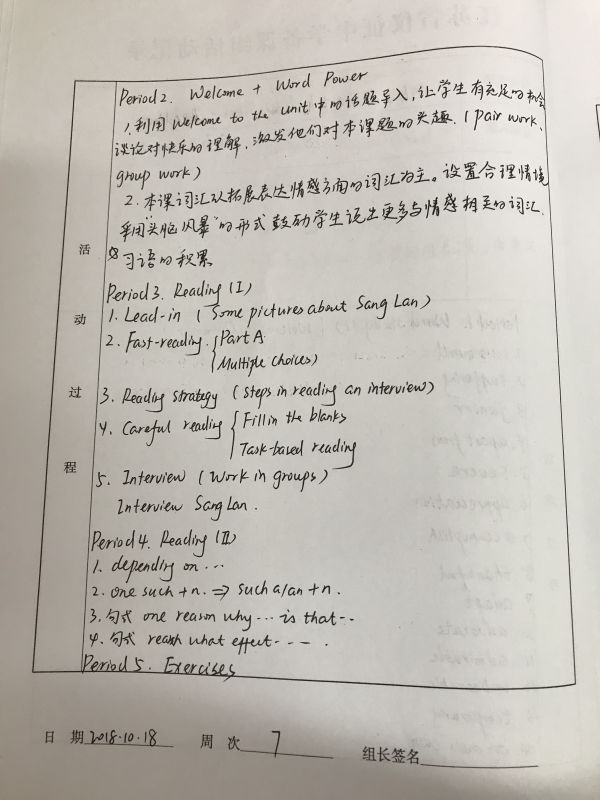 Period 2. Welcome + Word Power
1. 利用 Welcome to the unit 中的话题导入, 让学生有充足的机会
谈论对快乐的理解, 激发他们对本课题的兴趣. (pair work,
group work)
2. 本课词汇以拓展表达情感方面的词汇为主。设置合理情境
采用"头脑风暴"的形式鼓励学生说出更多与情感相关的词汇
习语的积累
活动过程
Period 3. Reading (I)
1. Lead-in (Some pictures about Sang Lan)
2. Fast-reading. { Part A
Multiple choices)
3. Reading strategy (steps in reading an interview)
4. Careful reading { Fill in the blanks
Task-based reading
5. Interview (Work in groups)
Interview Sang Lan.
Period 4. Reading (II)
1. depending on ...
2. one such + n. ⇒ such a/an + n.
3. 句式 one reason why ... is that...
4. 句式 what effect ----.
Period 5. Exercises
日 期 2018.10.18 周 次 7 组长签名